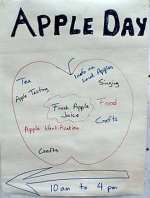 APPLE DAY
Tea
Info on
Local Apples
Apple Tasting
Singing
Fresh Apple
Juice
Food
Crafts
Apple Identification
Crafts
10 am to 4 pm